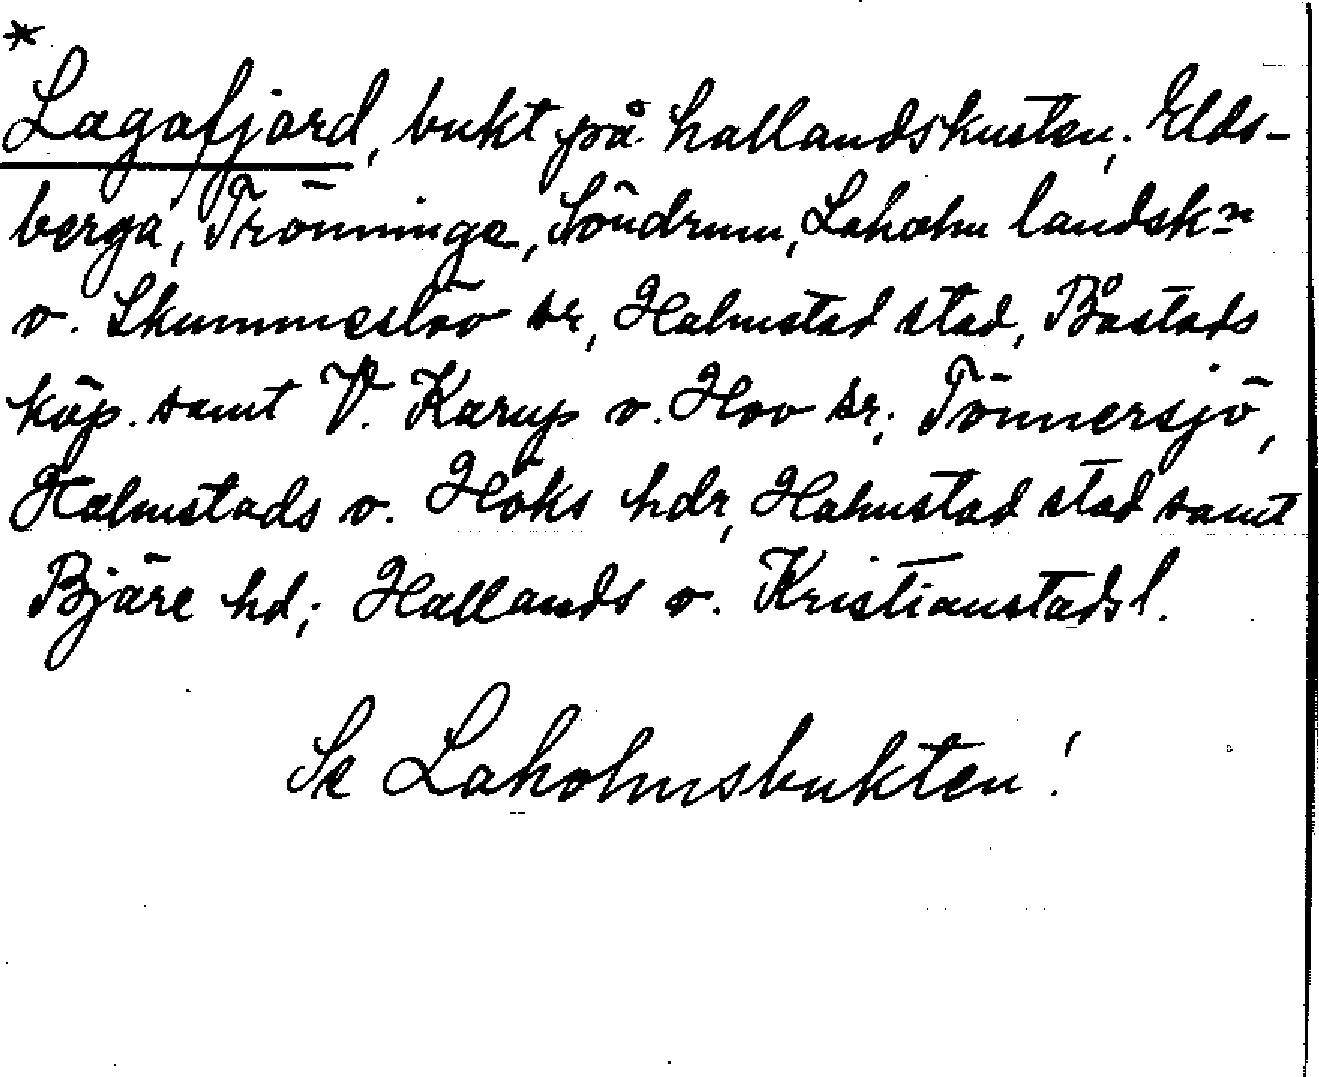 *
Lagafjord, bukt på hallandskusten; Elds-
berga, Trönninge, Söndrum, Laholm landsk:n
o. Skummeslöv sr, Halmstad stad, Båstads
köp. samt V. Karup o. Hov sr; Tönnersjö,
Halmstads o. Höks hdr, Halmstad stad samt
Bjäre hd; Hallands o. Kristianstads l.
Se Laholmsbukten!